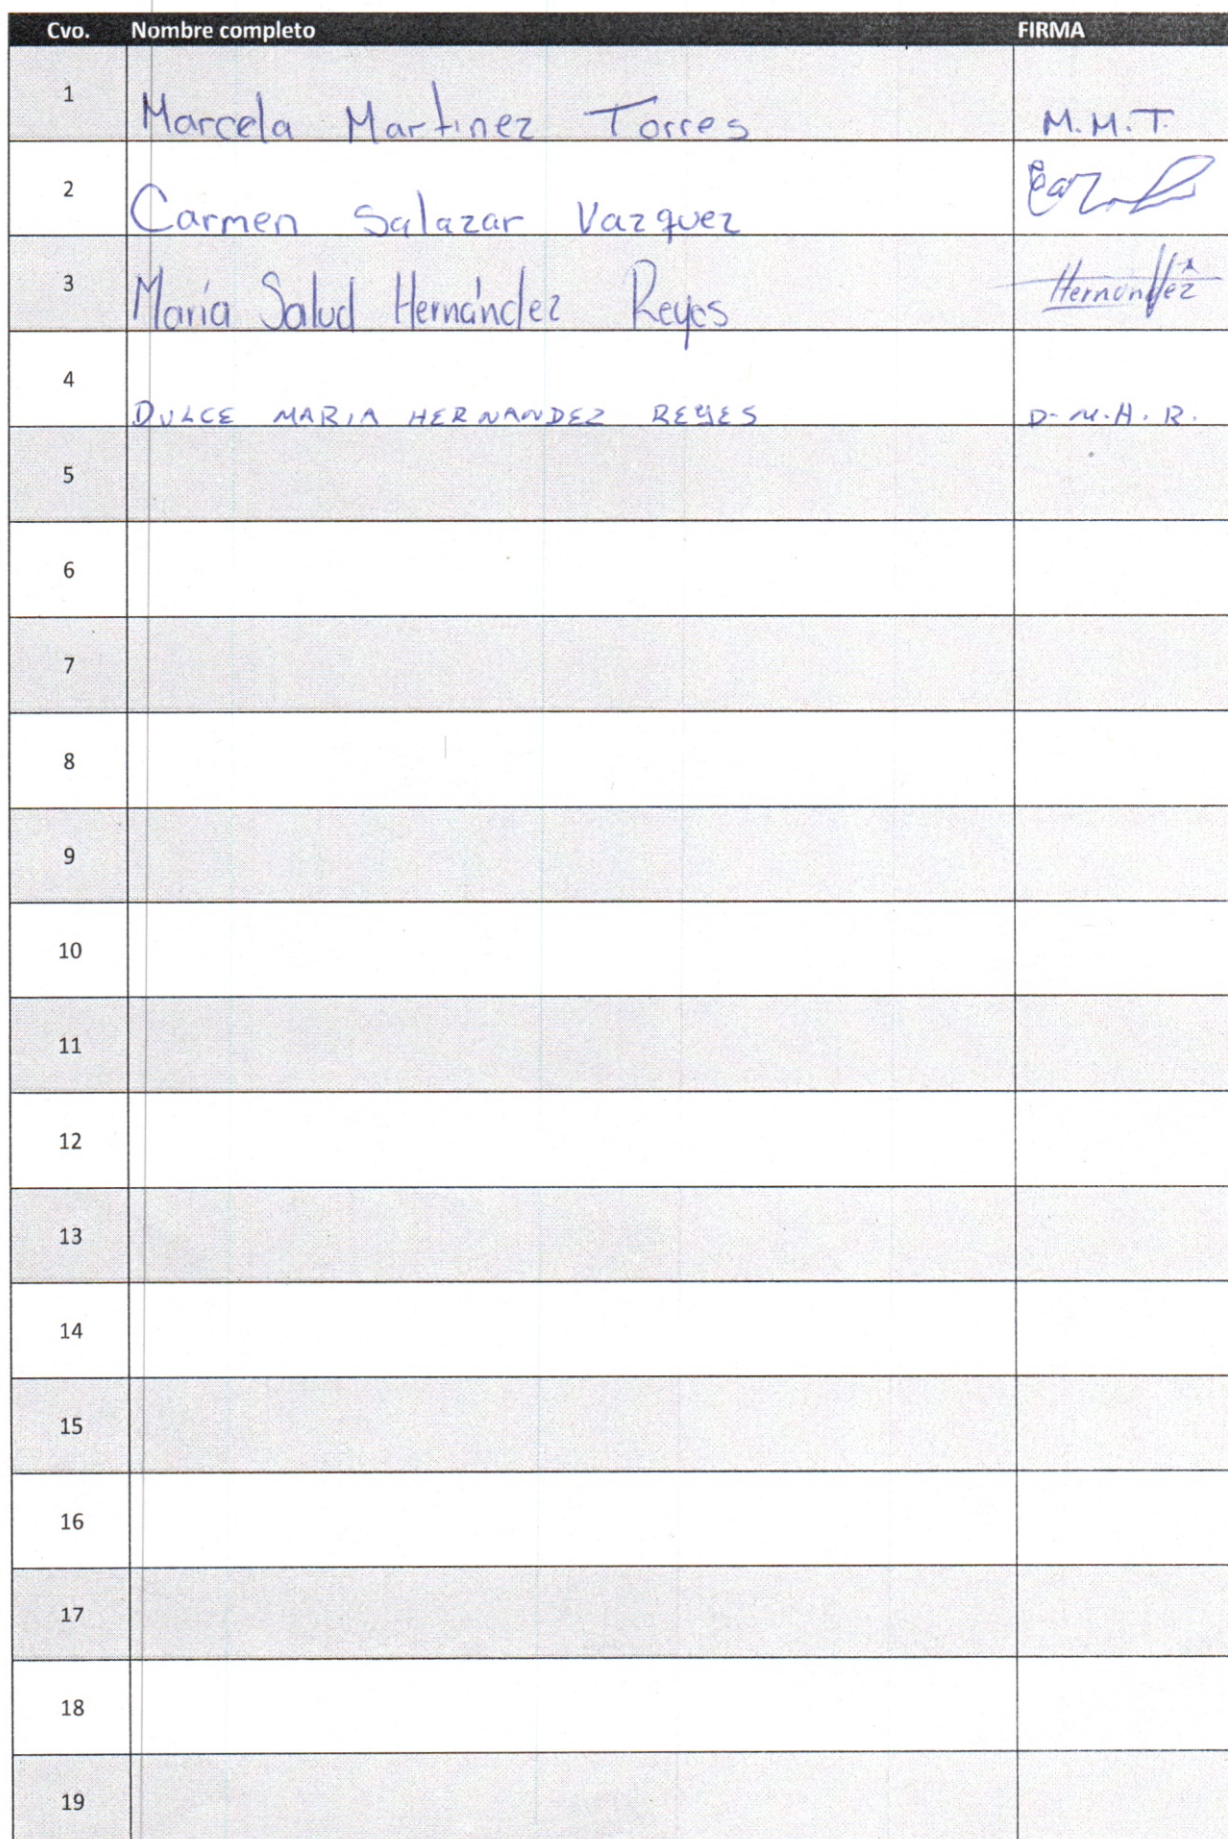 Cvo. Nombre completo FIRMA
1 Marcela Martinez Torres M.M.T.
2 Carmen Salazar Vazquez
3 María Salud Hernández Reyes Hernandez
4 DULCE MARIA HERNANDEZ REYES D.M.H.R.
5
6
7
8
9
10
11
12
13
14
15
16
17
18
19